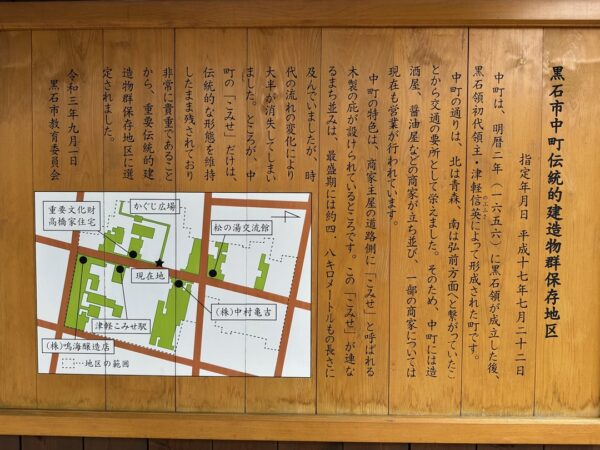 黒石市中町伝統的建造物群保存地区
指定年月日 平成十七年七月二十二日
中町は、明暦二年（一六五六）に黒石領が成立した後、
黒石領初代領主・津軽信英によって形成された町です。
中町の通りは、北は青森、南は弘前方面へと繋がっていたこ
とから交通の要所として栄えました。そのため、中町には造
酒屋、醤油屋などの商家が立ち並び、一部の商家については
現在も営業が行われています。
中町の特色は、商家主屋の道路側に「こみせ」と呼ばれる
木製の庇が設けられているところです。この「こみせ」が連な
るまち並みは、最盛期には約四．八キロメートルもの長さに
及んでいましたが、時
代の流れの変化により
大半が消失してしまい
ました。ところが、中
町の「こみせ」だけは、
伝統的な形態を維持
したまま残されており
非常に貴重であること
から、重要伝統的建
造物群保存地区に選
定されました。
令和三年九月一日
黒石市教育委員会
かぐじ広場
重要文化財
高橋家住宅
松の湯交流館
現在地
(株)中村亀吉
津軽こみせ駅
(株)鳴海醸造店
…地区の範囲